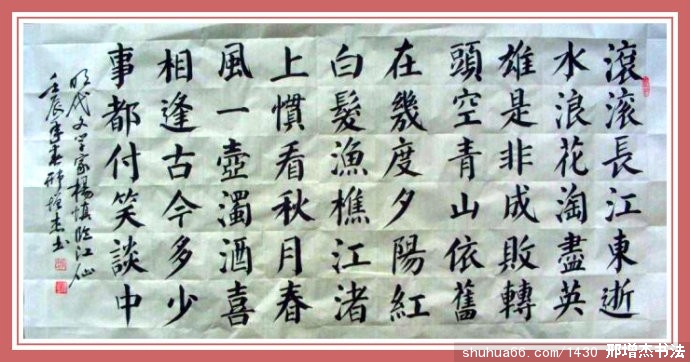 滾滚長江東逝
水浪花淘盡英
雄是非成敗轉
頭空青山依舊
在幾度夕陽紅
白髮漁樵江渚
上慣看秋月春
風一壺濁酒喜
相逢古今多少
事都付笑談中
明代文学家楊慎临江仙
壬辰年春邢增杰书
shuhua66.com/1430 邢增杰书法